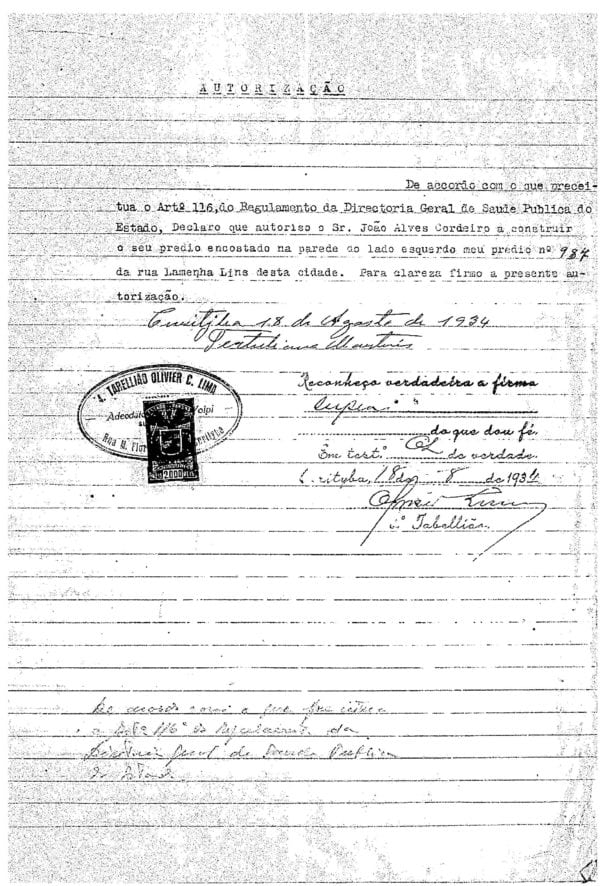 AUTORIZAÇÃO
De accordo com o que precei-
tua o Artº 116,do Regulamento da Directoria Geral de Saude Publica do
Estado, Declaro que autoriso o Sr. João Alves Cordeiro a construir
o seu predio encostado na parede do lado esquerdo meu predio nº 984
da rua Lamenha Lins desta cidade. Para clareza firmo a presente au-
torização.
Curityba 18 de Agosto de 1934
TABELLIÃO OLIVIER C. LIMA
Reconheço verdadeira a firma
supra
do que dou fé.
Em testº da verdade.
Curityba, 18 de 8 de 1934
Tabellião
2000
De accordo com o que preceitua
o Artº 116 do Regulamento da
Directoria Geral de Saude Publica
do Estado